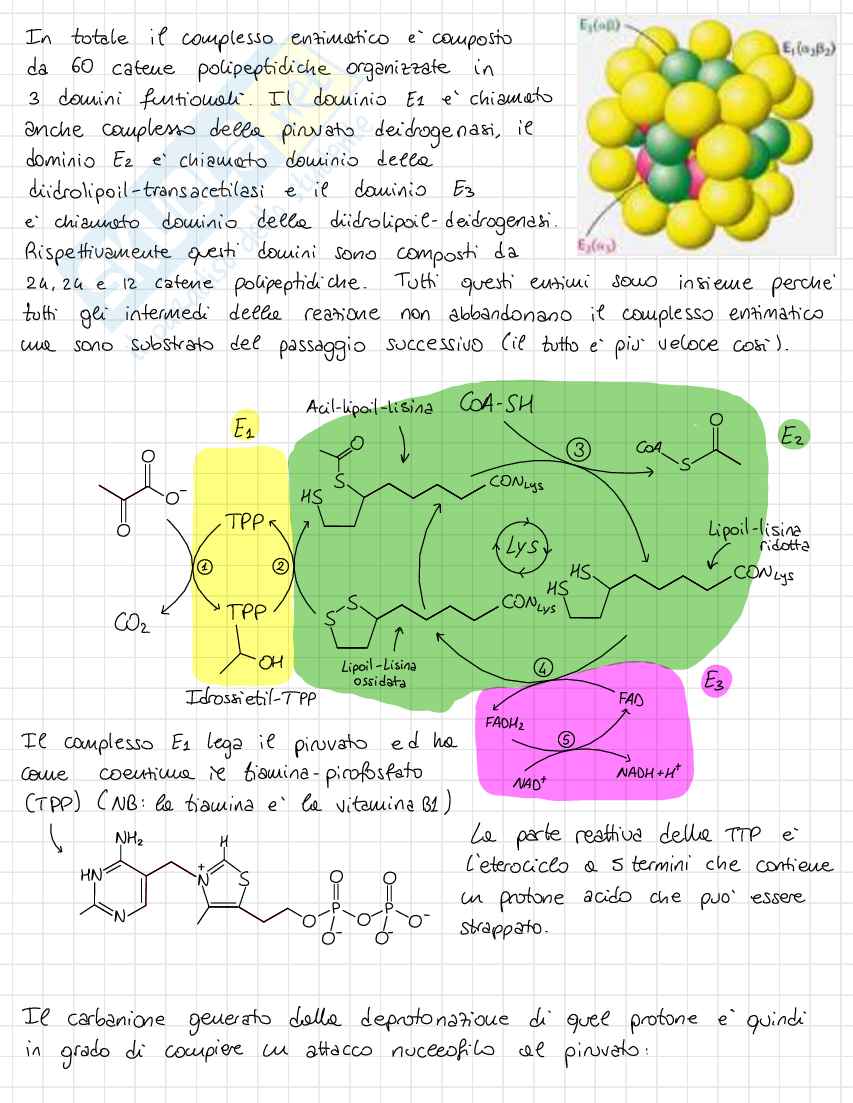 In totale il complesso enzimatico è composto
da 60 catene polipeptidiche organizzate in
3 domini funzionali. Il dominio E1 è chiamato
anche complesso della piruvato deidrogenasi, il
dominio E2 è chiamato dominio della
diidrolipoil-transacetilasi e il dominio E3
è chiamato dominio della diidrolipoil-deidrogenasi.
Rispettivamente questi domini sono composti da
24, 24 e 12 catene polipeptidiche. Tutti questi enzimi sono insieme perché
tutti gli intermedi della reazione non abbandonano il complesso enzimatico
ma sono substrato del passaggio successivo (il tutto è più veloce così).
E1(α2β2)
Acil-lipoil-lisina
CoA-SH
E1
E2
3
CoA
S
O
O
S
HS
CONLys
O
O-
O
TPP
LyS
Lipoil-lisina
ridotta
1
2
HS
HS
CONLys
TPP
CO2
S
S
CONLys
OH
Lipoil-Lisina
ossidata
4
E3
Idrossietil-TPP
FAD
FADH2
5
NAD+
NADH+H+
Il complesso E1 lega il piruvato ed ha
come coenzima il tiamina-pirofosfato
(TPP) (NB: la tiamina è la vitamina B1)
NH2
H
HN
N
N+
S
O
P
O
O-
O
P
O
O-
O-
La parte reattiva della TTP è
l'eterociclo a 5 termini che contiene
un protone acido che può essere
strappato.
Il carbanione generato dalla deprotonazione di quel protone è quindi
in grado di compiere un attacco nucleofilo al piruvato: